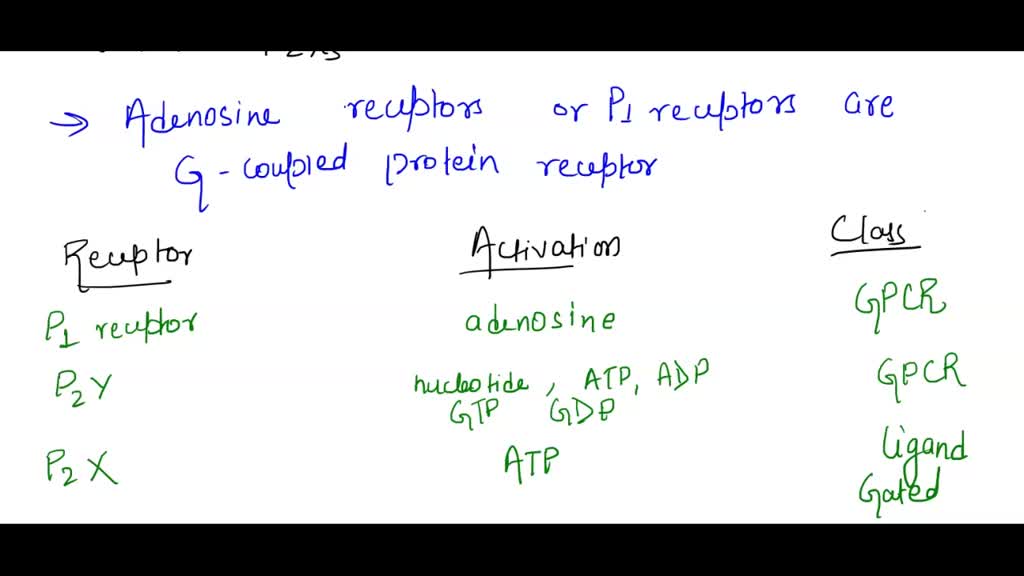 → Adenosine receptors or P1 receptors are
G-coupled protein receptor
Receptor Activation Class
P1 receptor adenosine GPCR
P2Y nucleotide, ATP, ADP GPCR
GTP GDP
P2X ATP Ligand
Gated